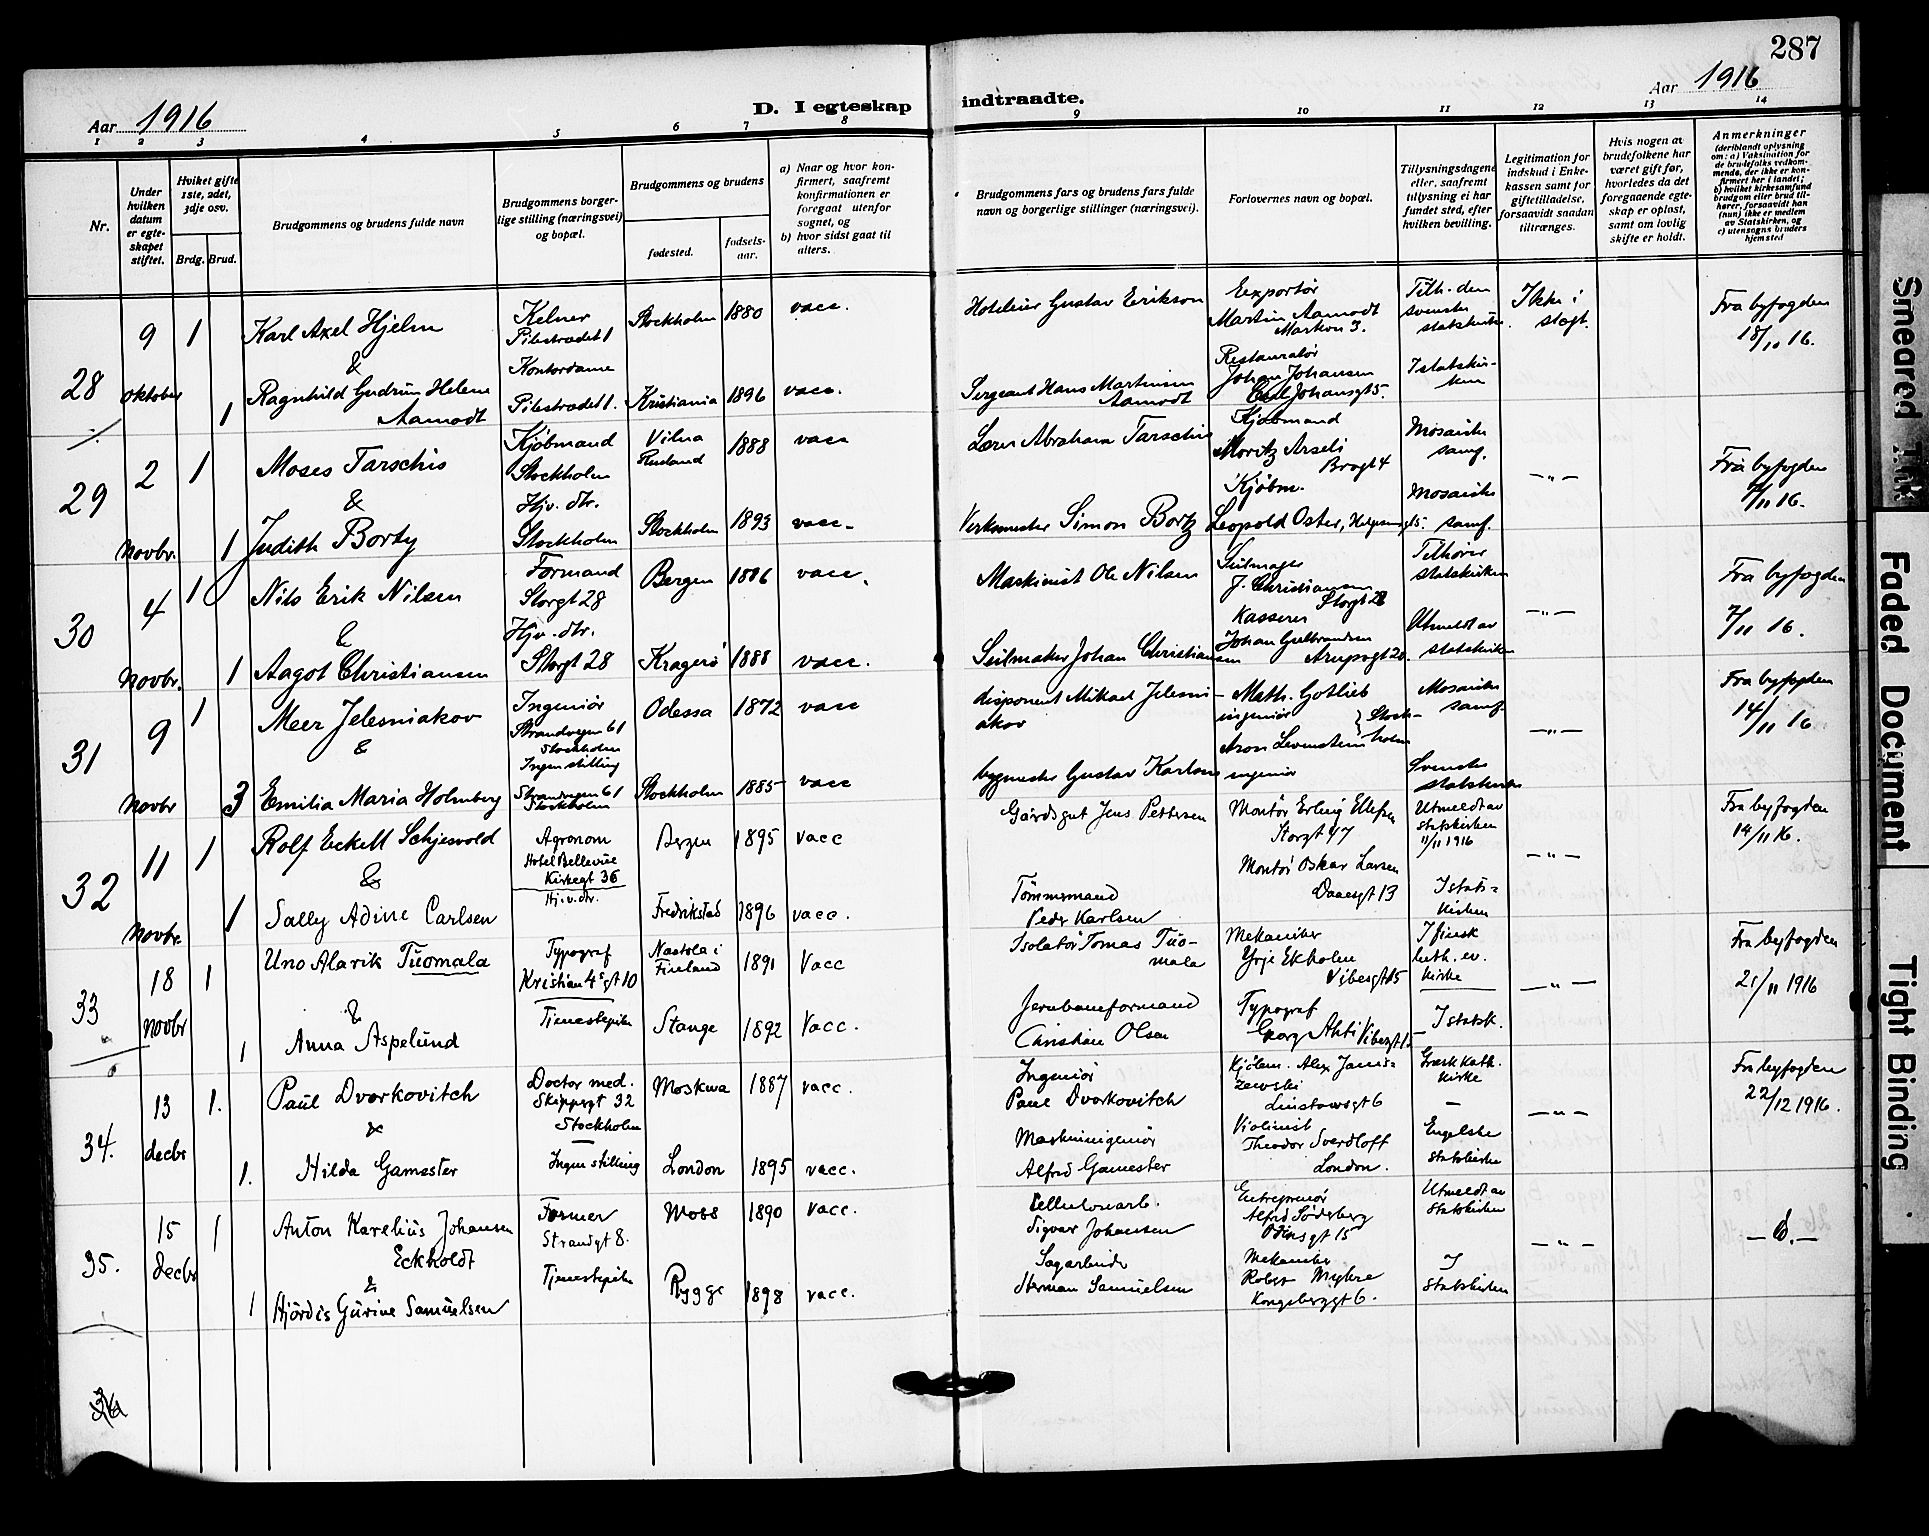 287
Aar 1916
D. I egteskap indtraadte.
Aar 1916
1 2 3 4 5 6 7 8 9 10 11 12 13 14
Nr.
Under hvilken datum er egteskapet stiftet.
Hviket gifte 1ste, 2det, 3dje osv.
Brdg. Brud.
Brudgommens og brudens fulde navn
Brudgommens borgerlige stilling (næringsvei) og bopæl.
Brudgommens og brudens
fødested.
fødselsaar.
a) Naar og hvor konfirmert, saafremt konfirmationen er foregaat utenfor sognet, og
b) hvor sidst gaat til alters.
Brudgommens fars og brudens fars fulde navn og borgerlige stillinger (næringsvei).
Forlovernes navn og bopæl.
Tillysningsdagene eller, saafremt tillysning ei har fundet sted, efter hvilken bevilling.
Legitimation for indskud i Enkekassen samt for giftetilladelse, forsaavidt saadan tiltrænges.
Hvis nogen av brudefolkene har været gift før, hvorledes da det foregaaende egteskap er opløst, samt om lovlig skifte er holdt.
Anmerkninger (deriblandt oplysning om: a) Vaksination for de brudefolks vedkommende, der ikke er konfirmert her i landet; b) hvilket kirkesamfund brudgom eller brud tilhører, forsaavidt han (hun) ikke er medlem av Statskirken, og c) utensogns bruders hjemsted
28
9 oktober
1
Karl Axel Hjelm
&
1 Ragnhild Gudrun Helene Aamodt
Kelner
Pilestrædet 1
Kontordame
Pilestrædet 1.
Stockholm 1880 vacc.
Kristiania 1896 vacc.
Hoteleier Gustav Erikson
Sergeant Hans Martinsen Aamodt
Exportør
Martin Aamodt
Markvn 3.
Restauratør
Johan Johansen
Carl Johansgt 5.
Tilh. den svenske statskirke.
I statskirken
Ikke i slegt.
Fra byfogden
18/10 16.
29
2 Novbr.
1
Moses Tarschis
&
1 Judith Borty
Kjøbmand
Stockholm
Hjv. dtr.
Stockholm
Vilna Rusland 1888 vacc
Stockholm 1893 vacc.
Lærer Abraham Tarschis
Verksmester Simon Bortz
Kjøbmand
Moritz Arseli
Brogt 4
Kjøbm.
Leopold Oster, Helgesensgt 5.
Mosaiske samf.
Mosaiske samf.
— " —
Fra byfogden
7/11 16.
30
4 Novbr.
1
Nils Erik Nilsen
&
1 Aagot Christiansen
Formand
Storgt 28
Hjv. dtr.
Storgt 28
Bergen 1886 vacc.
Kragerø 1888 vacc.
Maskinist Ole Nilsen
Seilmaker Johan Christiansen
Seilmager
J. Christiansen
Storgt 28
Kasserer
Johan Gulbrandsen
Arupsgt 20.
Tilhører statskirken
Utmeldt av statskirken
— " —
Fra byfogden
7/11 16.
31
9 Novbr
1
Meer Jelesniakov
&
3 Emilia Maria Holmberg
Ingeniør
Strandvegen 61
Stockholm
Ingen stilling
Strandvegen 61
Stockholm
Odessa 1872 vacc
Stockholm 1885 vacc
disponent Mikael Jelesniakov
bygmester Gustav Karlson
Math. Gotlieb
ingeniør
Aron Levenstein } Stockholm
ingeniør
Mosaiske samf.
Svenske statskirke
— " —
Fra byfogden
14/11 16.
32
11 Novbr.
1
Rolf Eckell Schjesvold
&
1 Sally Adine Carlsen
Agronom
Hotel Bellevue
Kirkegt 36
Hj.v. dtr.
Bergen 1895 vacc
Fredrikstad 1896 vacc.
Gårdsgut Jens Pettersen
Tømmermand
Peder Karlsen
Montør Erling Ellefsen
Storgt 47
Montør Oskar Larsen
Daaesgt 13
Utmeldt av statskirken 11/11 1916
I statskirken
— " —
Fra byfogden
14/11 16.
33
18 Novbr
1
Uno Alarik Tuomala
&
1 Anna Aspelund
Typograf
Kristian 4s gt 10
Tjenestepike
Nastola i Finland 1891 Vacc
Stange 1892 Vacc.
Isolatør Tomas Tuomala
Jernbaneformand
Christian Olsen
Mekaniker
Yrje Ekholm
Vibesgt 15
Typograf
Georg Ahti Vibesgt 1.
I finsk luth. ev. kirke
I statsk.
— " —
Fra byfogden
21/11 1916
34.
13 decbr
1.
Paul Dvorkovitch
&
1. Hilda Gamester
Doctor med.
Skippergt 32
Stockholm
Ingen stilling
Moskwa 1887 vacc.
London 1895 vacc.
Ingeniør
Paul Dvorkovitch
Maskiningeniør
Alfred Gamester
Kjøbm. Alex Janiszewski
Linstowsgt 6
Violinist
Theodor Sverdloff
London.
Græsk kath. kirke
Engelske statskirke
— " —
Fra byfogden
22/12 1916.
35.
15 Decbr
1
Anton Karelius Johansen Eckholdt
&
1 Hjørdis Gurine Samuelsen
Former
Strandgt 8.
Tjenestepike
Moss 1890 vacc.
Rygge 1898 vacc.
Cellulosearb.
Sigvar Johansen
Sagarbeider
Herman Samuelsen
Entreprenør
Alfred Söderberg
Odinsgt 15
Mekaniker
Robert Myhre
Kongsberggt 6.
Utmeldt av statskirken
I statskirken
— " —
— d. —
36
Smeared Ink
Faded Document
Tight Binding